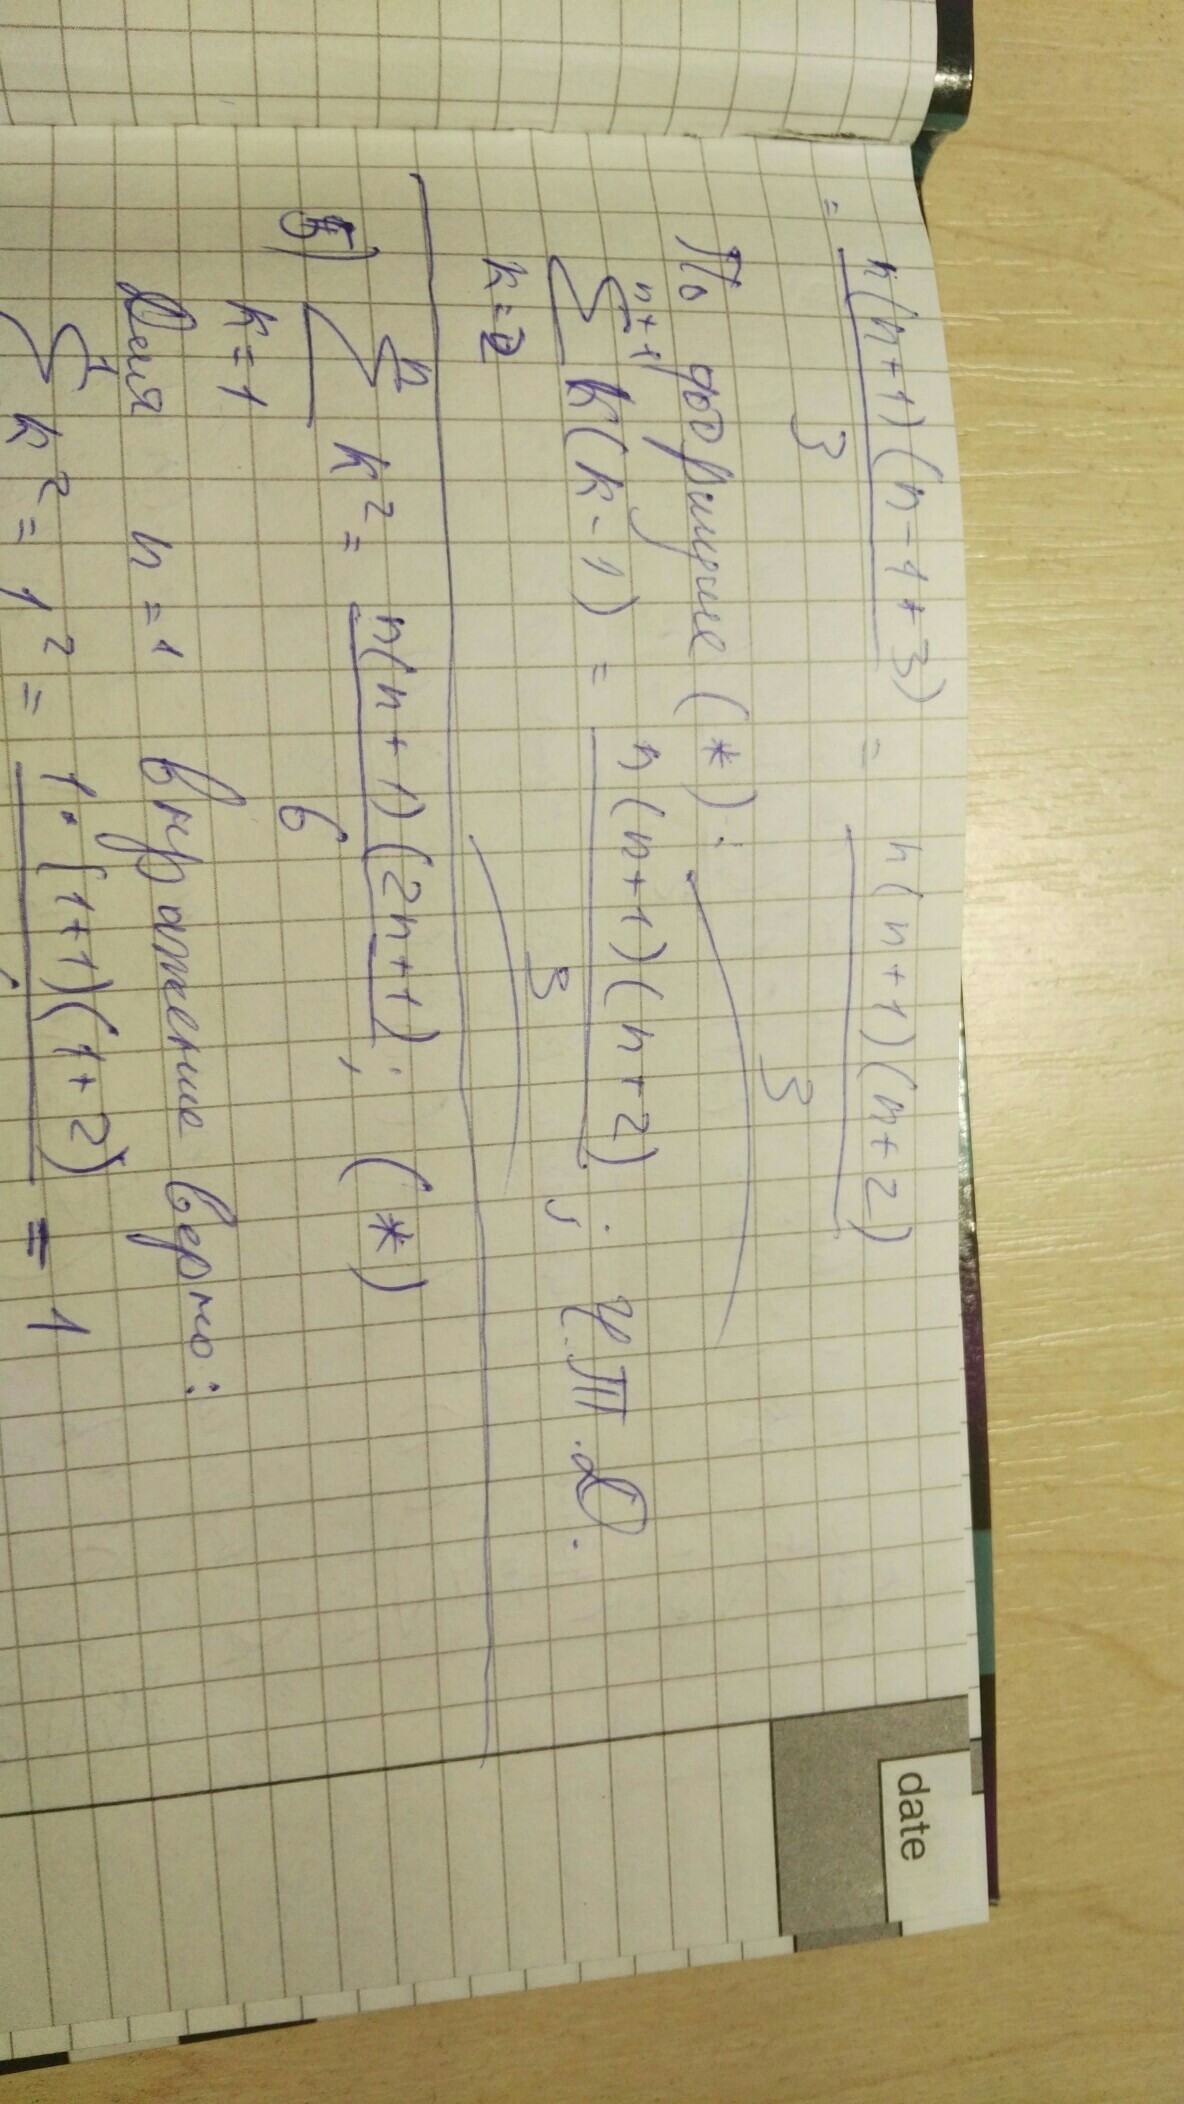 date
= n(n+1)(n-1+3) / 3 = n(n+1)(n+2) / 3
По формуле (*):
n+1
∑ k(k-1) = n(n+1)(n+2) / 3 ; Ч.Т.Д.
k=2
5) n
∑ k² = n(n+1)(2n+1) / 6 ; (*)
k=1
Для n=1 выражение верно:
1
∑ k² = 1² = 1·(1+1)(1+2) = 1